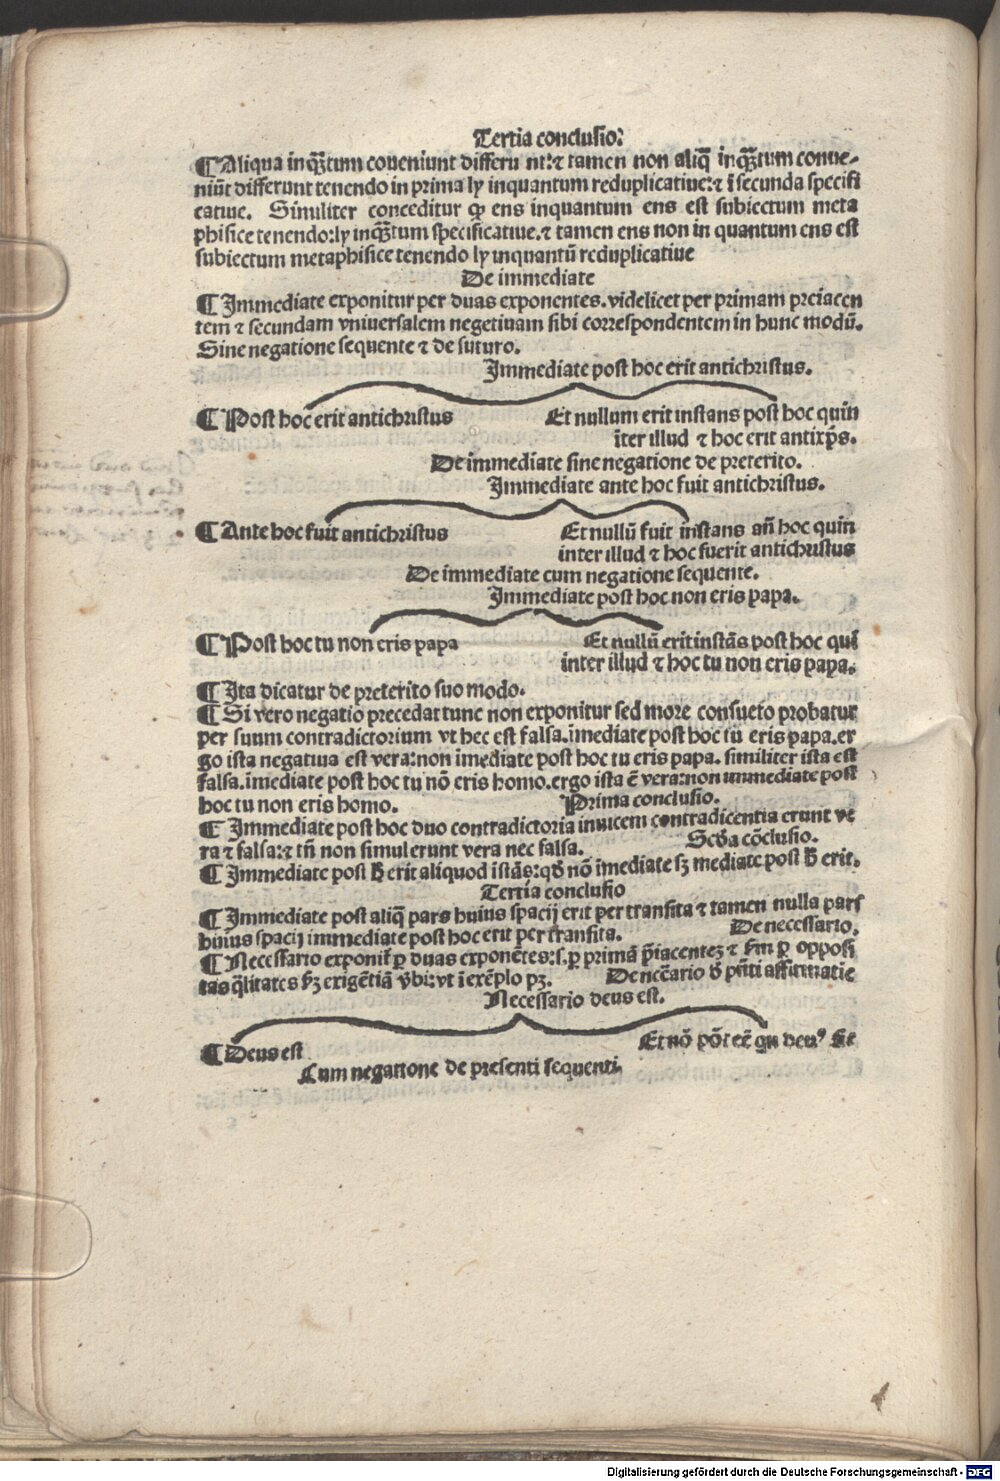 Tertia conclusio:
¶ Aliqua inqȝtum coveniunt differu nt: ⁊ tamen non aliq̃ inqȝtum conue-
niũt differunt tenendo in prima ly inquantum reduplicatiue: ⁊ ĩ secunda specifi
catiue. Similiter conceditur ꝙ ens inquantum ens est subiectum meta
phisice tenendo: ly inqȝtum specificatiue. ⁊ tamen ens non in quantum ens est
subiectum metaphisice tenendo ly inquantũ reduplicatiue
De immediate
¶ Immediate exponitur per duas exponentes. videlicet per primam preiacen
tem ⁊ secundam vniuersalem negetiuam sibi correspondentem in hunc modũ.
Sine negatione sequente ⁊ de futuro.
Immediate post hoc erit antichristus.
¶ Post hoc erit antichristus Et nullum erit instans post hoc quin
ĩter illud ⁊ hoc erit antixp̃s.
De immediate sine negatione de preterito.
Immediate ante hoc fuit antichristus.
¶ Ante hoc fuit antichristus Et nullũ fuit instans añ hoc quin
inter illud ⁊ hoc fuerit antichristus
De immediate cum negatione sequente.
Immediate post hoc non eris papa.
¶ Post hoc tu non eris papa Et nullũ erit instãs post hoc qui
inter illud ⁊ hoc tu non eris papa.
¶ Ita dicatur de preterito suo modo.
¶ Si vero negatio precedat tunc non exponitur sed more consueto probatur
per suum contradictorium vt hec est falsa. ĩmediate post hoc tu eris papa. er
go ista negatiua est vera: non ĩmediate post hoc tu eris papa. similiter ista est
falsa. ĩmediate post hoc tu nõ eris homo. ergo ista ẽ vera: non immediate post
hoc tu non eris homo. Prima conclusio.
¶ Immediate post hoc duo contradictoria inuicem contradicentia erunt ve
ra ⁊ falsa: ⁊ tñ non simul erunt vera nec falsa. Scd̃a cõclusio.
¶ Immediate post h̃ erit aliquod ĩstãs: qd̃ nõ ĩmediate sȝ mediate post h̃ erit.
Tertia conclusio
¶ Immediate post aliq̃ pars huius spacij erit per transita ⁊ tamen nulla pars
huius spacij immediate post hoc erit per transita. De necessario.
¶ Necessario exponit̃ ꝑ duas exponẽtes: s. ꝑ primã p̃iacenteȝ ⁊ fm̃ ꝑ opposi
tas q̃litates fȝ exigẽtiã v̾bi: vt ĩ exẽplo pȝ. De nec̃ario d̾ p̃nti affirmatiẽ
Necessario deus est.
¶ Deus est Et nõ põt eẽ qn deuꝰ sit
Cum negatione de presenti sequenti.
Digitalisierung gefördert durch die Deutsche Forschungsgemeinschaft - DFG